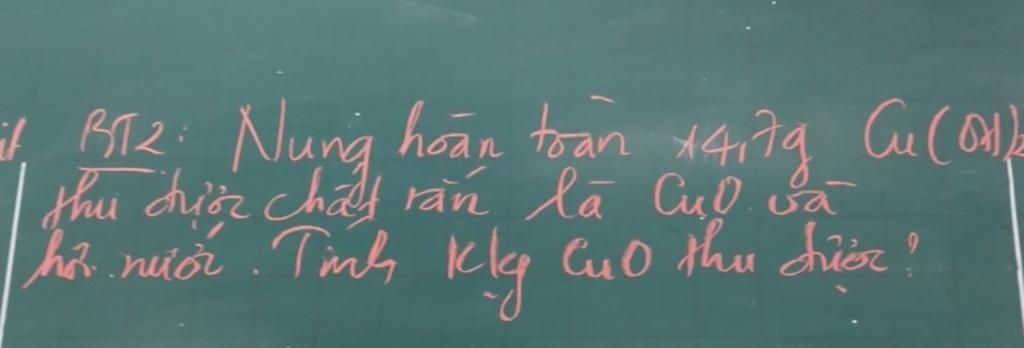 BT2: Nung hoàn toàn 14,7g Cu(OH)2
thu được chất rắn là CuO và
hơi nước. Tính Klg CuO thu được?